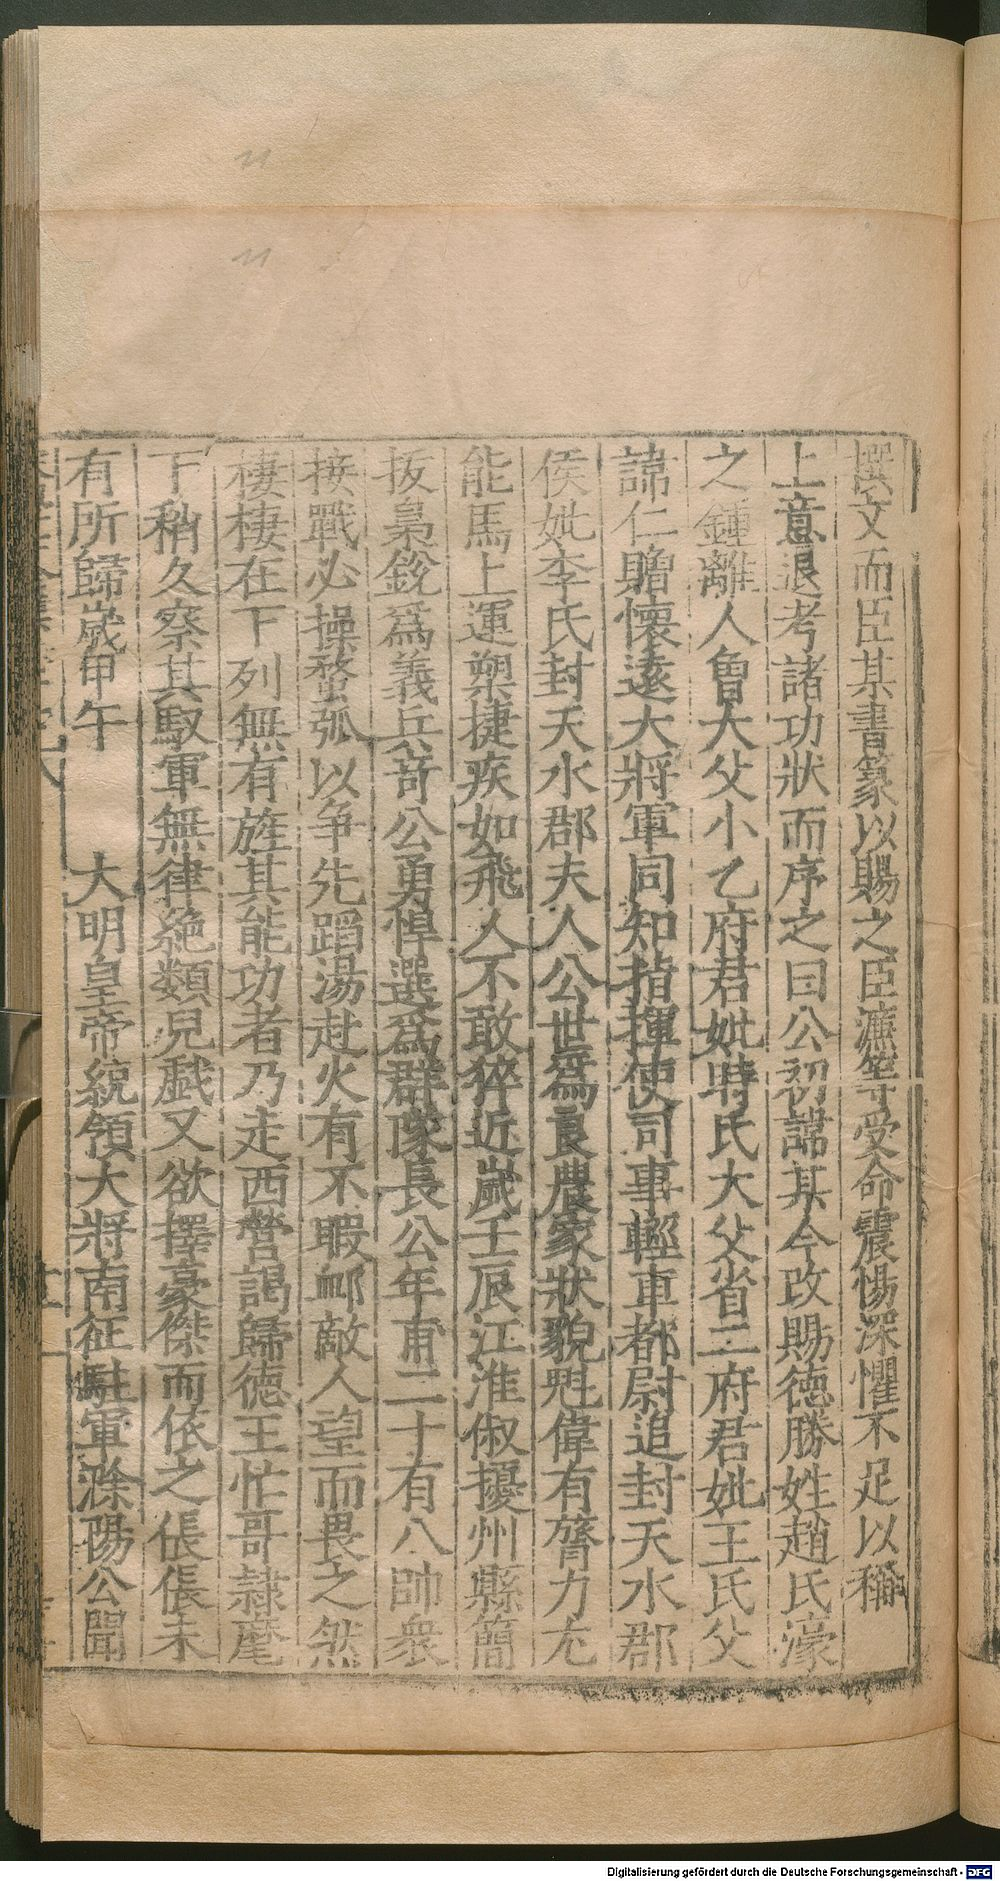 撰文而臣某書篆以賜之臣濂等受命震惕深懼不足以稱
上意退考諸功狀而序之曰公初諱某今改賜德勝姓趙氏濠
之鍾離人曾大父小乙府君妣時氏大父省二府君妣王氏父
諱仁贈懷遠大將軍同知指揮使司事輕車都尉追封天水郡
侯妣李氏封天水郡夫人公世爲良農家狀貌魁偉有膂力尤
能馬上運槊捷疾如飛人不敢猝近歲壬辰江淮俶擾州縣簡
拔梟銳爲義兵竒公勇悍選爲群隊長公年甫二十有八帥衆
接戰必操蝥弧以争先蹈湯赴火有不暇䘏敵人望而畏之然
棲棲在下列無有旌其能功者乃走西營謁歸德王忙哥隷麾
下稍久察其馭軍無律絶類兒戲又欲擇豪傑而依之倀倀未
有所歸歲甲午 大明皇帝統領大將南征駐軍滁陽公聞
Digitalisierung gefördert durch die Deutsche Forschungsgemeinschaft - DFG